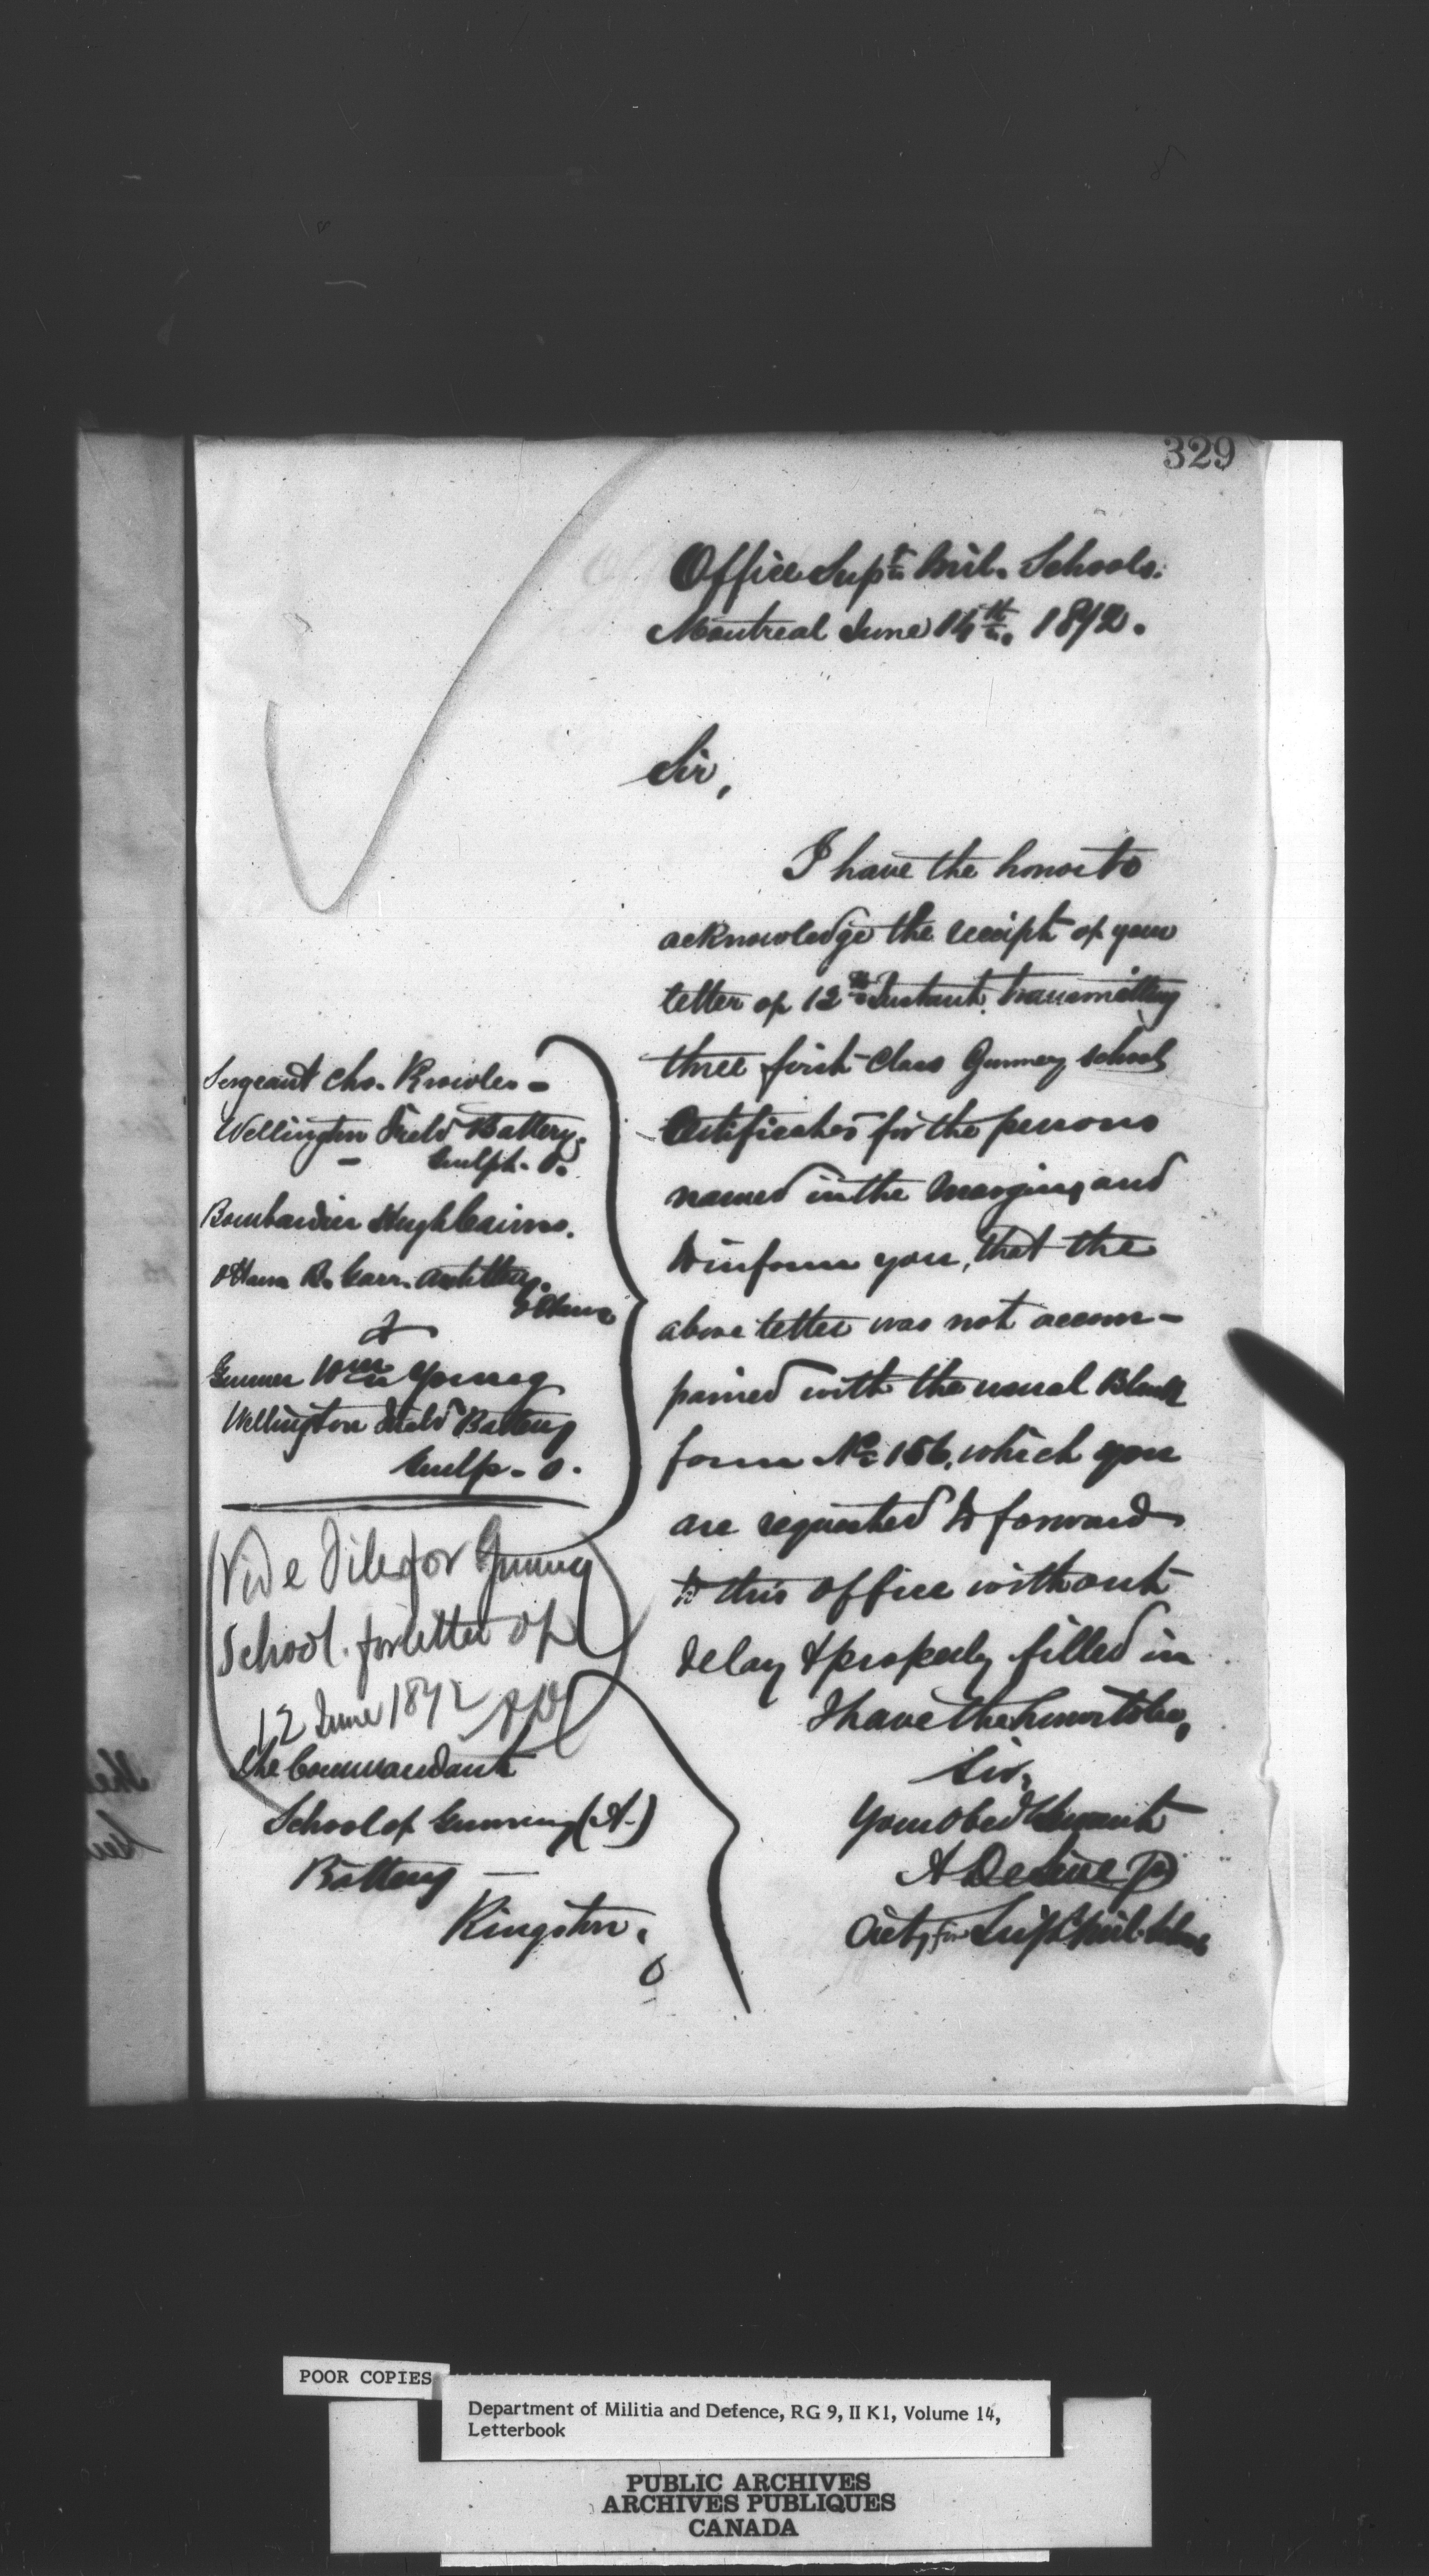 329
Office Supt. Mil. Schools.
Montreal June 14th. 1872.
Sir,
I have the honor to
acknowledge the receipt of your
letter of 12th Instant, transmitting
three first Class Gunnery School
Certificates for the persons
named in the Margin, and
to inform you, that the
above letter was not accom-
pained with the usual Blank
form No 156, which you
are requested to forward
to this office without
delay & properly filled in
I have the honor to be,
Sir,
Your obed Servant
A
Acty for Supt Mil. Schls
Sergeant Chs. Knowles -
Wellington Field Battery.
Guelph. O.
Bombardier Hugh Cairns.
Ottawa B. Garr. Artillery.
Ottawa
&
Gunner Wm Young
Wellington Field Battery
Guelp - O.
(Vide File for Gunny
School. for letter of
12 June 1872
The Commandant
School of Gunnery (A.)
Battery -
Kingston.
O
POOR COPIES
Department of Militia and Defence, RG 9, II K1, Volume 14,
Letterbook
PUBLIC ARCHIVES
ARCHIVES PUBLIQUES
CANADA